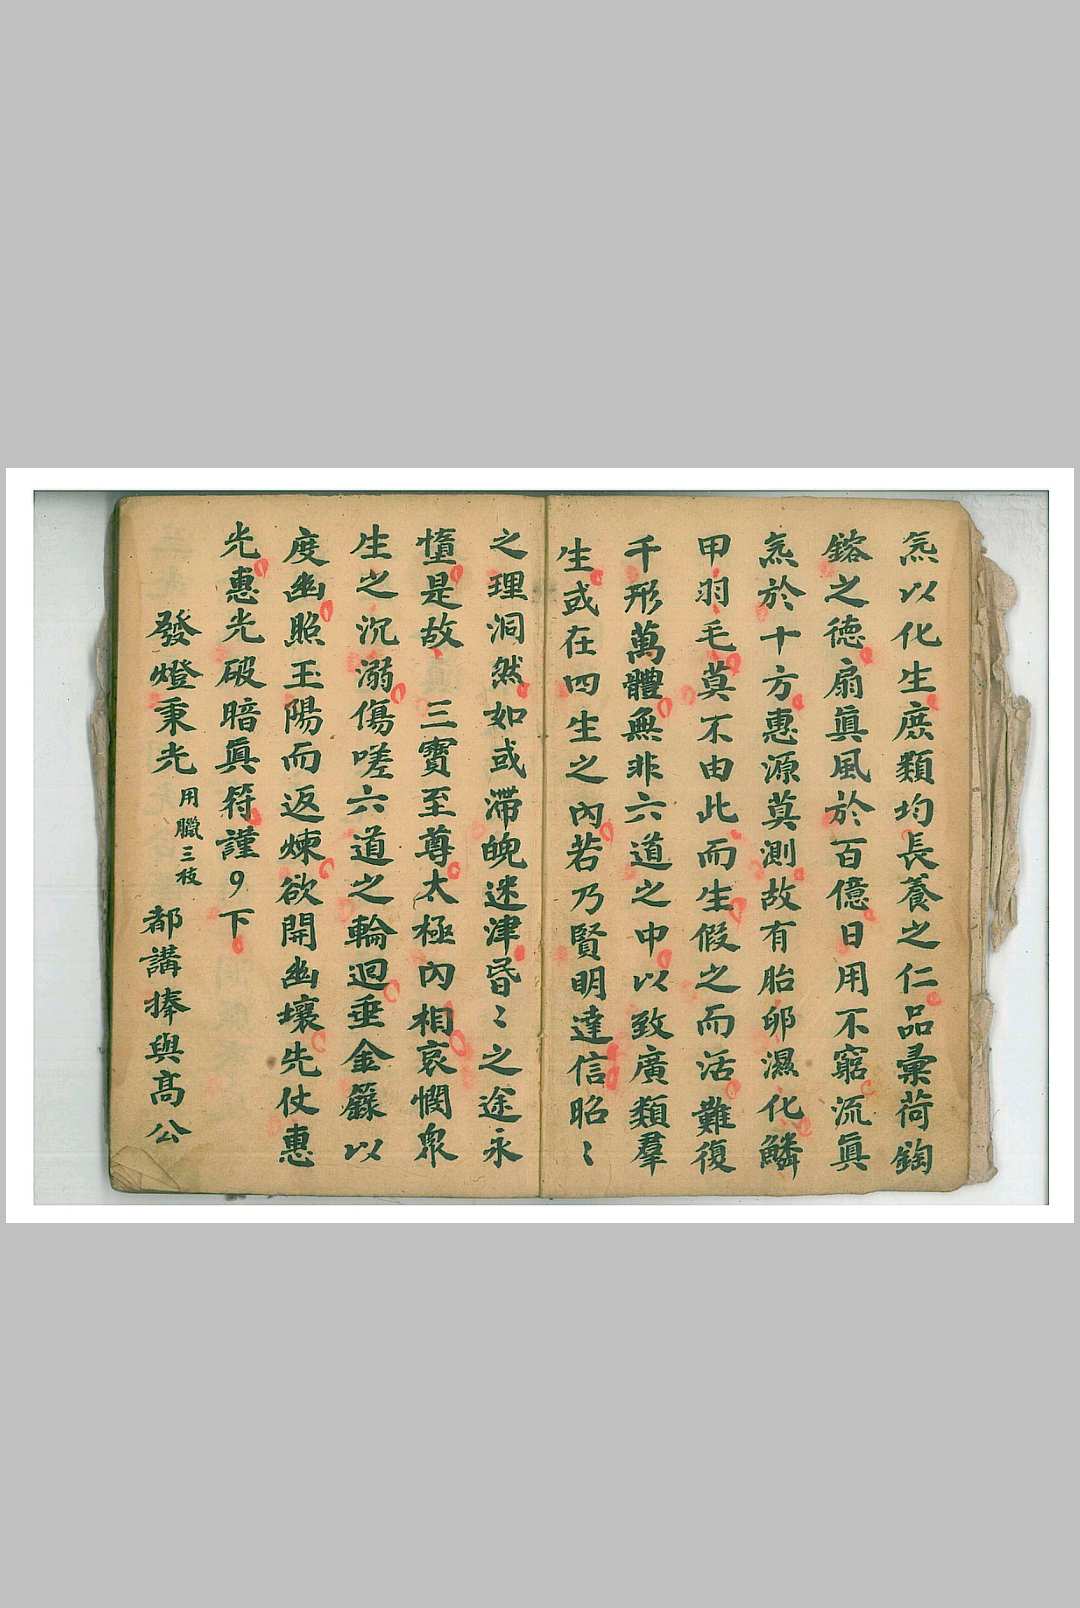 炁以化生庶類均長養之仁品彙荷鈞
鎔之徳扇眞風於百億日用不窮流眞
炁於十方惠源莫測故有胎卵濕化鱗
甲羽毛莫不由此而生假之而活難復
千形萬體無非六道之中以致廣類羣
生或在四生之內若乃賢明達信昭〻
之理洞然如或滯魄迷津昏〻之途永
墮是故 三寶至尊太極內相哀憫衆
生之沉溺傷嗟六道之輪迴垂金籙以
度幽照玉陽而返煉欲開幽壤先仗惠
光惠光破暗眞符謹9下
發燈秉光 用臘三枝 都講捧與髙公